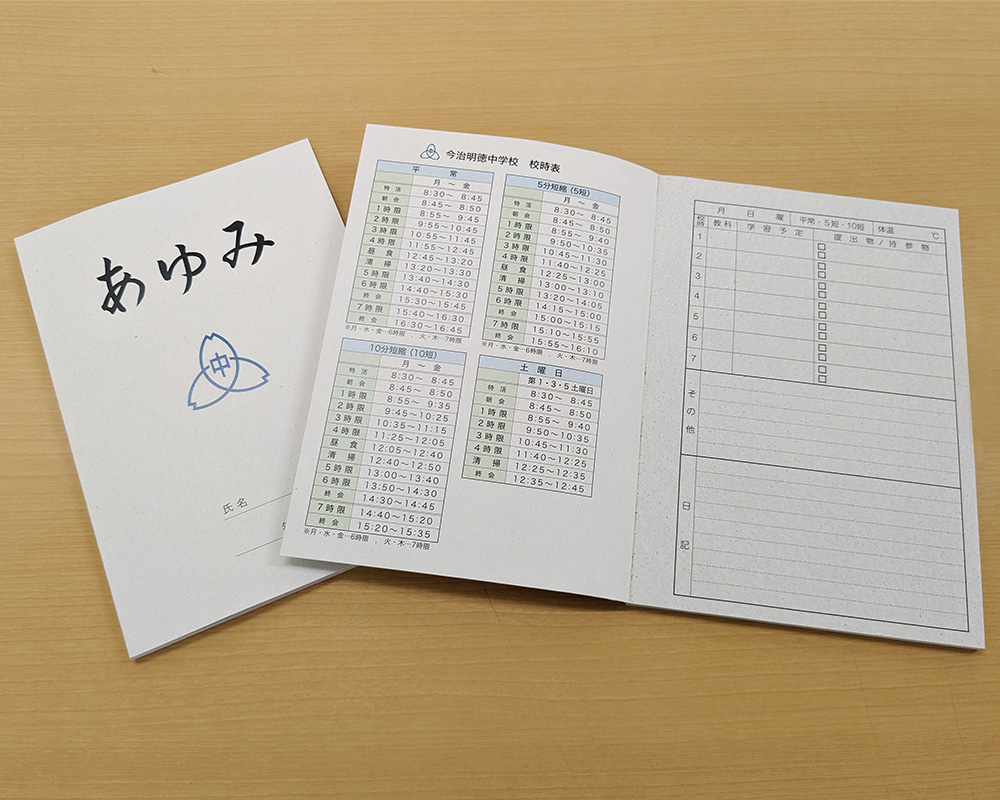 あゆみ
中
氏名
中
今治明徳中学校 校時表
平 常
月 ～ 金
特活 8:30～ 8:45
朝会 8:45～ 8:50
1時限 8:55～ 9:45
2時限 9:55～10:45
3時限 10:55～11:45
4時限 11:55～12:45
昼 食 12:45～13:20
清 掃 13:20～13:30
5時限 13:40～14:30
6時限 14:40～15:30
終 会 15:30～15:45
7時限 15:40～16:30
終 会 16:30～16:45
※月・水・金…6時限 、火・木…7時限
5分短縮(5短)
月 ～ 金
特活 8:30～ 8:45
朝会 8:45～ 8:50
1時限 8:55～ 9:40
2時限 9:50～10:35
3時限 10:45～11:30
4時限 11:40～12:25
昼 食 12:25～13:00
清 掃 13:00～13:10
5時限 13:20～14:05
6時限 14:15～15:00
終 会 15:00～15:15
7時限 15:10～15:55
終 会 15:55～16:10
※月・水・金…6時限 、火・木…7時限
10分短縮(10短)
月 ～ 金
特活 8:30～ 8:45
朝会 8:45～ 8:50
1時限 8:55～ 9:35
2時限 9:45～10:25
3時限 10:35～11:15
4時限 11:25～12:05
昼 食 12:05～12:40
清 掃 12:40～12:50
5時限 13:00～13:40
6時限 13:50～14:30
終 会 14:30～14:45
7時限 14:40～15:20
終 会 15:20～15:35
※月・水・金…6時限 、火・木…7時限
土 曜 日
第1・3・5土曜日
特活 8:30～ 8:45
朝会 8:45～ 8:50
1時限 8:55～ 9:40
2時限 9:50～10:35
3時限 10:45～11:30
4時限 11:40～12:25
清 掃 12:25～12:35
終 会 12:35～12:45
月 日 曜 平常・5短・10短 体温 ℃
校時 教科 学習予定 提出物/持参物
1
2
3
4
5
6
7
その他
日記